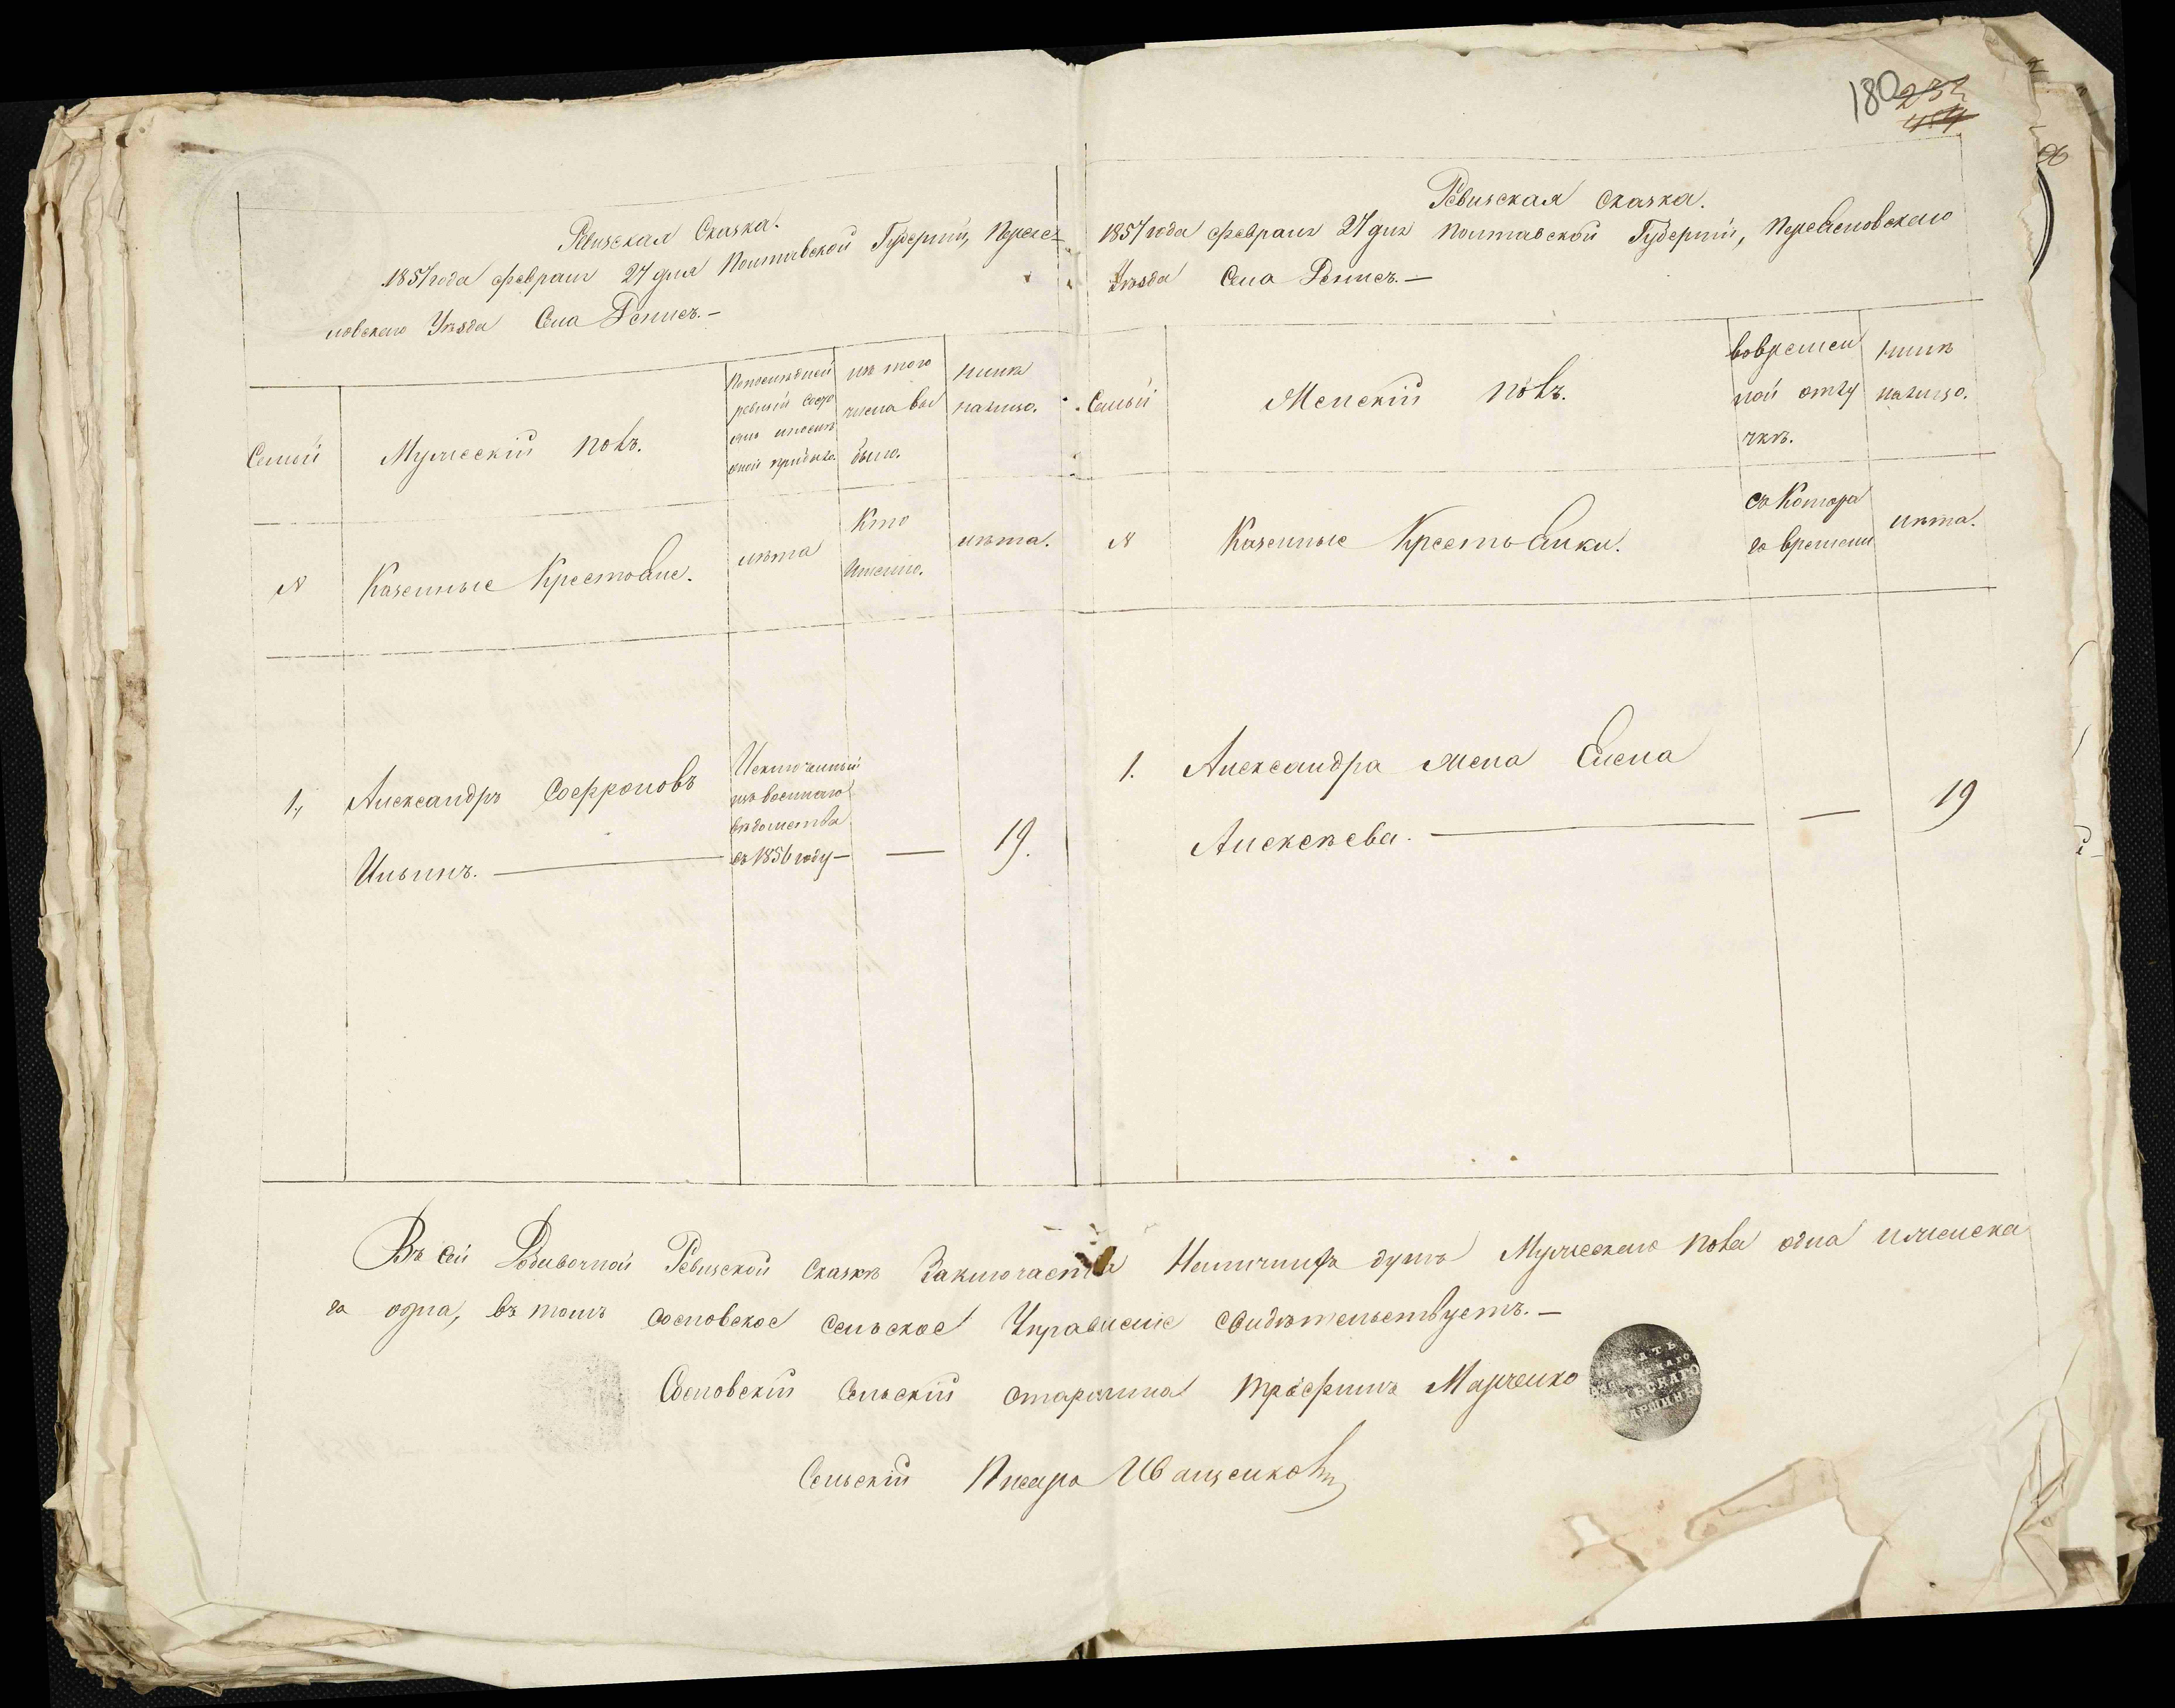 180 232
414
Ревизская Сказка.
1857 года февраля 27 дня Полтавской Губернии, Переяс-
ловского Уѣзда Села
Семьи
Мужескій полъ.
По последней
ревизіи состо
яло и после
оной прибыло.
изъ того
числа вы
было.
нынѣ
налицо.
N
Казенные Крестьяне.
лѣта
Кто
именно.
лѣта.
1,
Александръ Софроновъ
Ильинъ. —
Исключенный
изъ военнаго
вѣдомства
въ 1856 году —
—
19.
Ревизская Сказка.
1857 года февраля 27 дня Полтавской Губерніи, Переясловского
Уѣзда Села
Семьи
Женскій полъ.
вовремен
ной отлу
чкѣ.
нынѣ
налицо.
N
Казенные Крестьянки.
съ Котора
го времени
лѣта.
1.
Александра жена Елена
Алексѣева. —
—
19
Въ сей Добавочной Ревизской Сказкѣ Заключается Наличныхъ душъ Мужеского пола одна и женска
го одна, въ томъ сосновское сельское Управленіе свидѣтельствуетъ. —
Сосновскій Сельскій старшина Трофимъ Марченко
Сельскій Писарь Иващенковъ